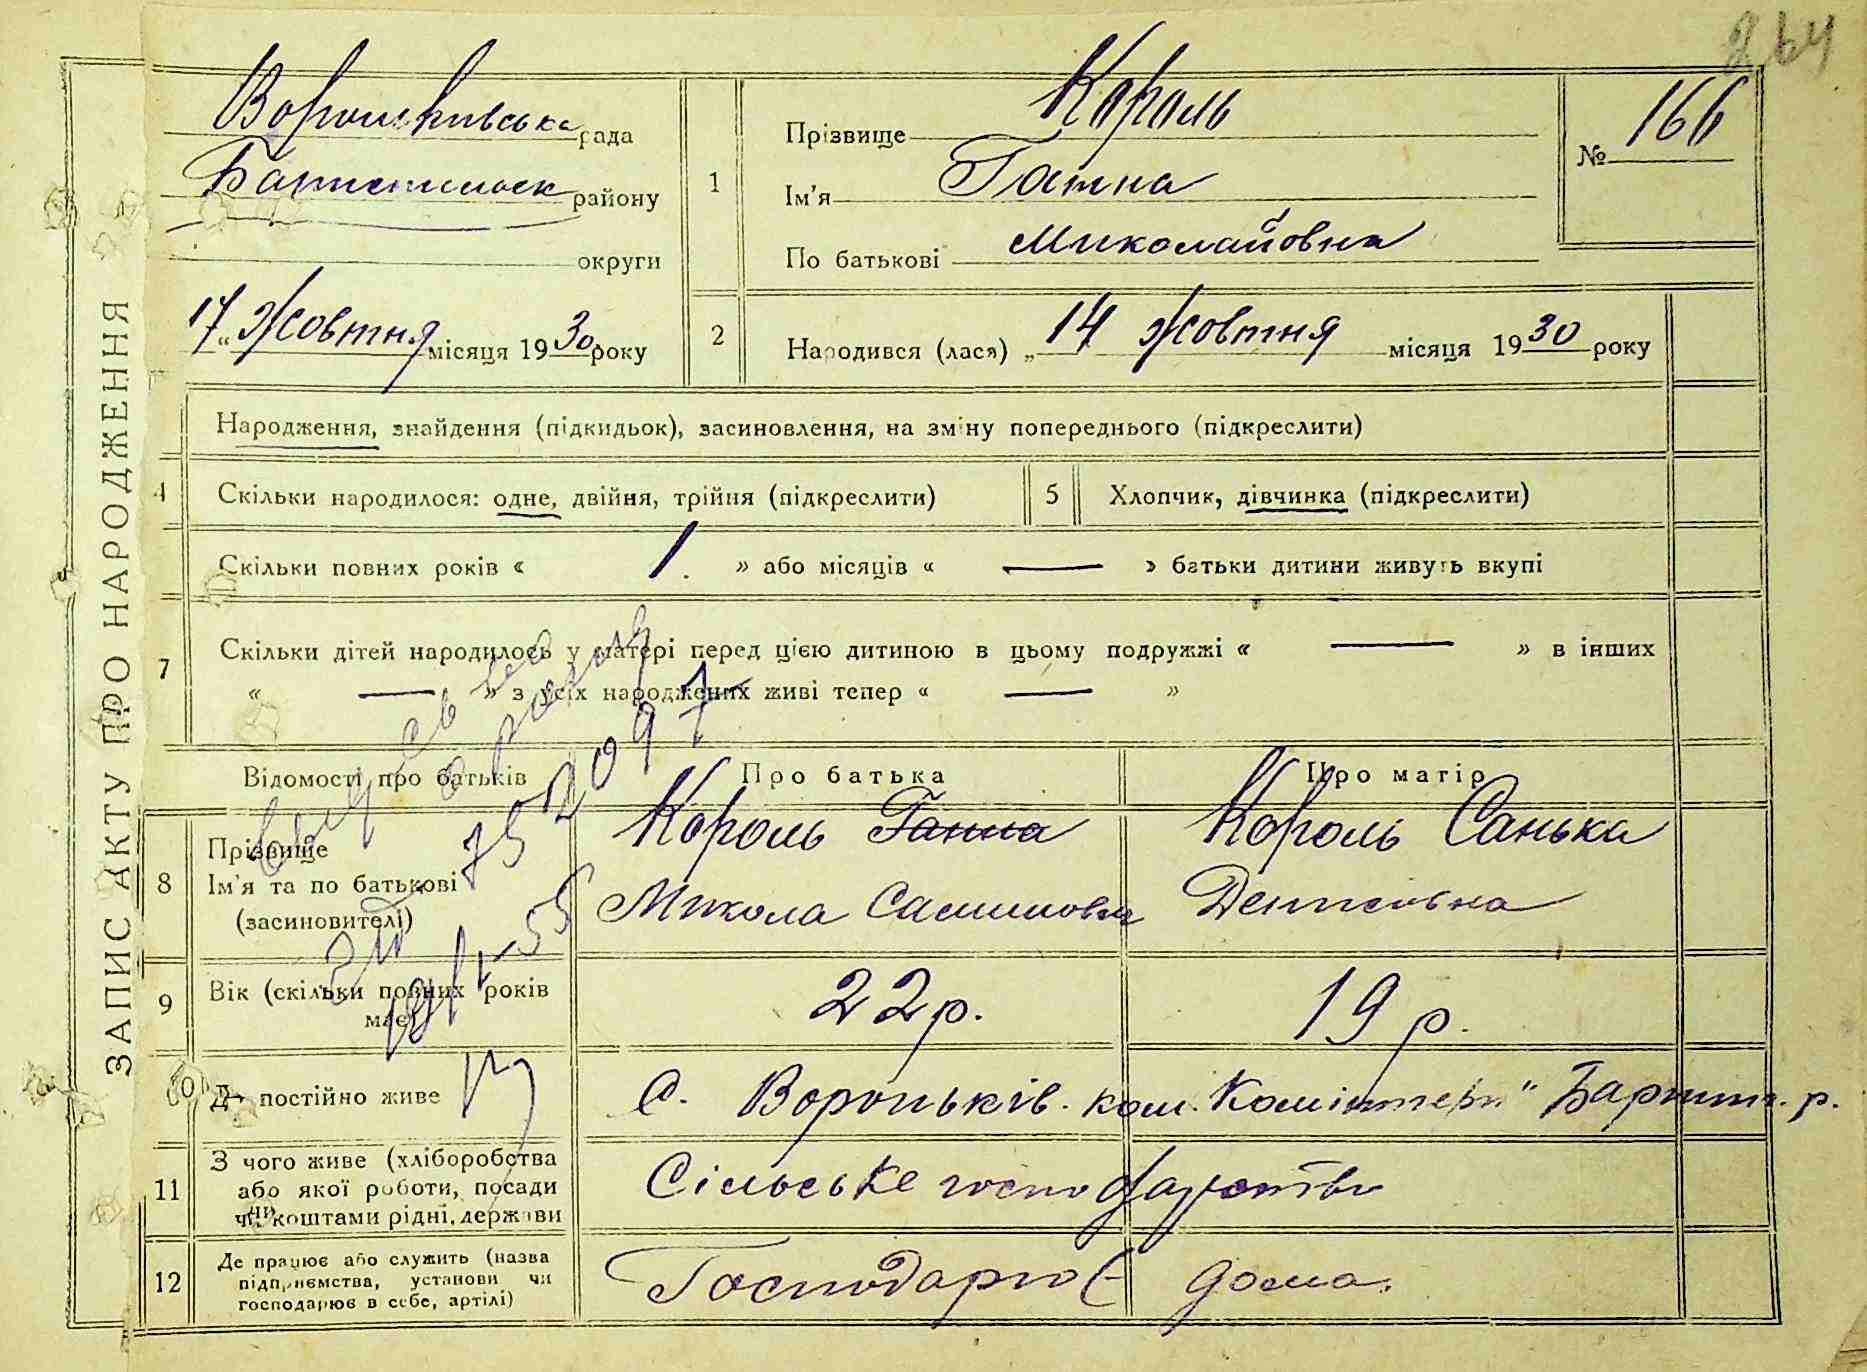 264
ЗАПИС АКТУ ПРО НАРОДЖЕННЯ
Вороньківська рада
району
округи
17 „ Жовтня місяця 1930 року
1
Прізвище Король
Ім'я Ганна
По батькові Миколайовна
№ 166
2
Народився (лася) „ 14 Жовтня місяця 1930 року
Народження, знайдення (підкидьок), засиновлення, на зміну попереднього (підкреслити)
4 Скільки народилося: одне, двійня, трійня (підкреслити)
5 Хлопчик, дівчинка (підкреслити)
Скільки повних років « 1 » або місяців « — » батьки дитини живуть вкупі
7 Скільки дітей народилось у матері перед цією дитиною в цьому подружжі « — » в інших
« — » з усіх народжених живі тепер « — »
Відомості про батьків Про батька Про матір
8 Прізвище
Ім'я та по батькові
(засиновителі)
Король Ганна
Микола
Король Санька
Денисовна
9 Вік (скільки повних років
має)
22 р.
19 р.
10 Де постійно живе
С. Вороньків. ком. Комінтерн" р.
11 З чого живе (хліборобства
або якої роботи, посади
чи коштами рідні, держави
Сільське господарство
12 Де працює або служить (назва
підприємства, установи чи
господарює в себе, артілі)
Господарює дома.